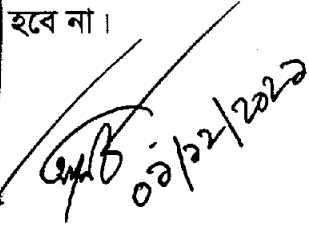 হবে না।
০১/১২/২০২১